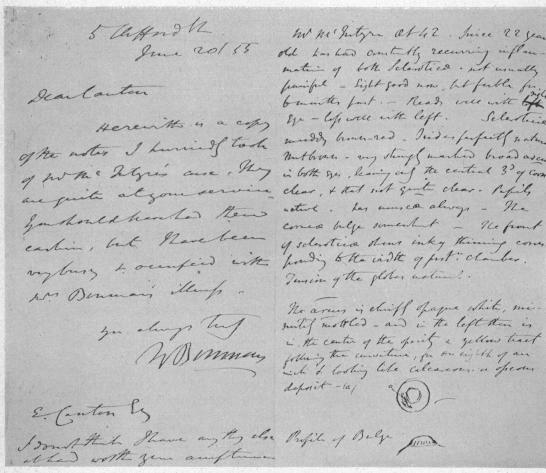 5 Clifford St
June 20/55
Dear Canton
Herewith is a copy
of the notes I hurriedly took
of Mr McIntyre's case. They
are quite at your service.
You should have had them
earlier, but I have been
very busy & occupied with
Mrs Bowman's illness.
yrs always truly
W Bowman
E. Canton Esq
I don't think I have anything else
at hand worth your acceptance
Mr McIntyre æt 42. Since 22 years
old has had constantly recurring inflam-
mation of both Sclerotica. not usually
painful - Sight good now, but feeble for
6 months past. - Reads well with right
Eye - less well with left. Sclerotica
muddy brown-red. Irides perfectly natural
Nutbrown - very strongly marked broad arcus
in both eyes, leaving only the central 3d of cornea
clear, & that not quite clear. Pupils
active. has muscæ always - The
corneæ bulge somewhat - The front
of sclerotica shows inky thinning corres-
ponding to the width of post. chamber.
Tension of the globes natural.
The arcus is chiefly opaque white, mi-
nutely mottled - and in the left there is
in the center of the opacity a yellow tract
following the curvature, for an eighth of an
inch & looking like calcareous or osseous
deposit - (a) a
Profile of Bulge